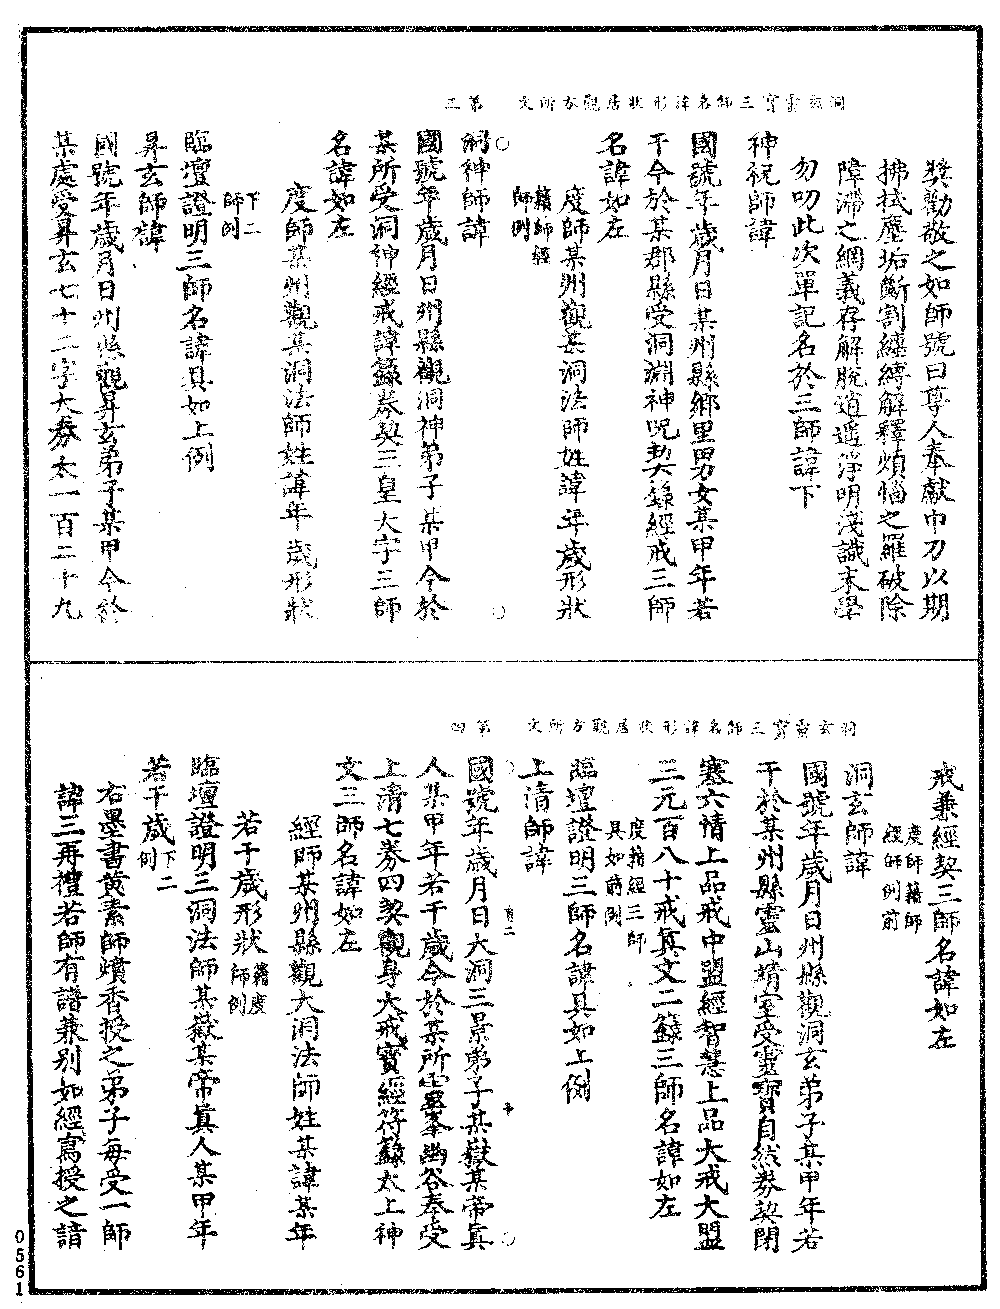 洞玄靈寶三師名諱形狀居觀方所文　第三
獎勸敬之如師號曰尊人奉獻巾刀以期
拂拭塵垢斷割纏縛解釋煩惱之羅破除
障滯之網義存解脫逍遙淨明淺識末學
勿叨此次單記名於三師諱下
神祝師諱
國號年歲月日某州縣鄉里男女某甲年若
干今於某郡縣受洞淵神呪契籙經戒三師
名諱如左
度師某州觀某洞法師姓諱年歲形狀
籍師經
師例
洞神師諱
國號年歲月日州縣觀洞神弟子某甲今於
某所受洞神經戒諱籙券契三皇大字三師
名諱如左
度師某州觀某洞法師姓諱年歲形狀
下二
師例
臨壇證明三師名諱具如上例
昇玄師諱
國號年歲月日州縣觀昇玄弟子某甲今於
某處受昇玄七十二字大券太一百二十九
洞玄靈寶三師名諱形狀居觀方所文　第四
戒兼經契三師名諱如左
度師籍師
經師例前
洞玄師諱
國號年歲月日州縣觀洞玄弟子某甲年若
干於某州縣靈山靖室受靈寶自然券契閉
塞六情上品戒中盟經智慧上品大戒大盟
三元百八十戒真文二籙三師名諱如左
度籍經三師
具如前例
臨壇證明三師名諱具如上例
上清師諱
國號年歲月日大洞三景弟子某嶽某帝真
人某甲年若干歲今於某所靈峯幽谷奉受
上清七券四契觀身大戒寶經符籙太上神
文三師名諱如左
經師某州縣觀大洞法師姓某諱某年
若干歲形狀
籍度
師例
臨壇證明三洞法師某嶽某帝真人某甲年
若干歲
下二
例
右墨書黃素師燌香授之弟子每受一師
諱三再禮若師有譜兼別如經寫授之諳
0561